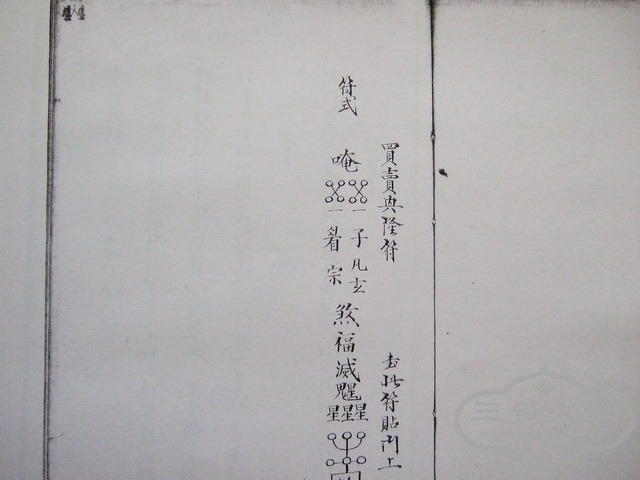 買賣興隆符 書此符貼門上
符式
唵
一一
子
凡玄
宗
煞
福
滅魒
星星星